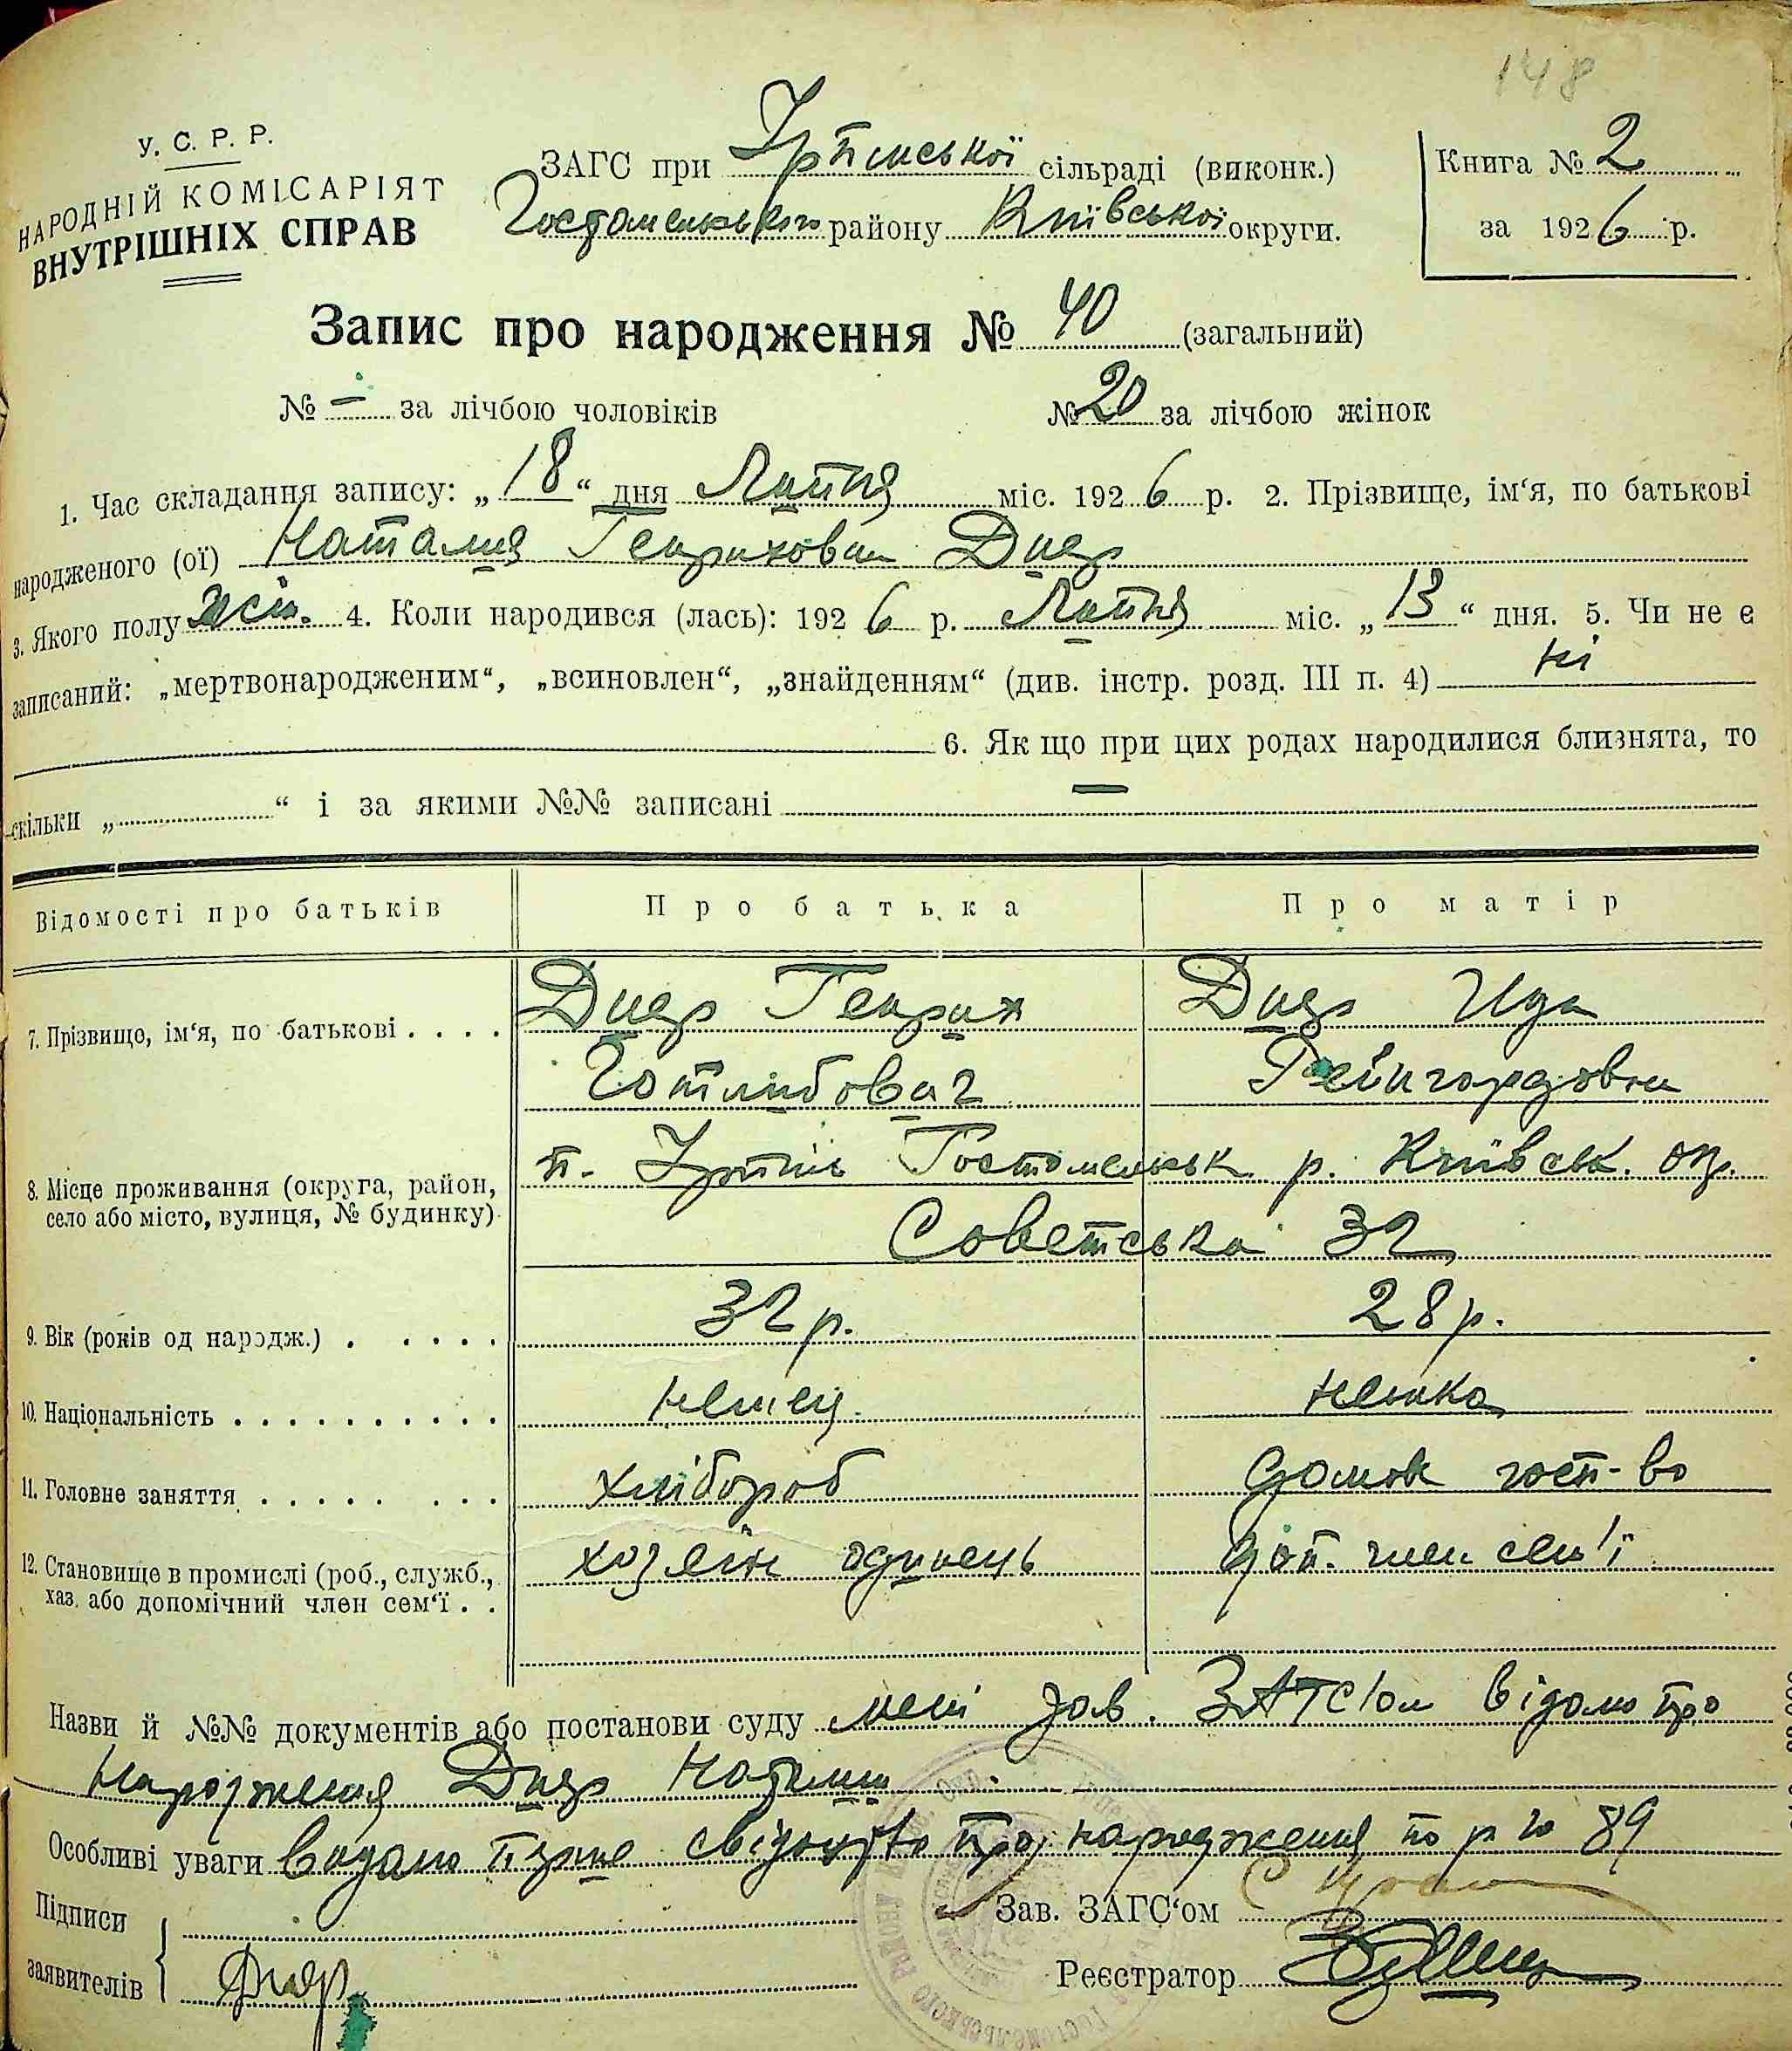 148
У. С. Р. Р.
НАРОДНІЙ КОМІСАРІЯТ
ВНУТРІШНІХ СПРАВ
ЗАГС при Ірпінської сільраді (виконк.)
Гостомельського району Київської округи.
Книга № 2
за 1926 р.
Запис про народження № 40 (загальний)
№ — за лічбою чоловіків № 20 за лічбою жінок
1. Час складання запису: „18“ дня Липня міс. 1926 р. 2. Прізвище, ім‘я, по батькові
народженого (ої) Наталия Генриховна Диер
3. Якого полу жін. 4. Коли народився (лась): 1926 р. Липня міс. „13“ дня. 5. Чи не є
записаний: „мертвонародженим“, „всиновлен“, „знайденням“ (див. інстр. розд. III п. 4) ні
6. Як що при цих родах народилися близнята, то
скільки „ “ і за якими №№ записані —
Відомості про батьків Про батька Про матір
7. Прізвище, ім‘я, по батькові . . . . Диер Генрих Диер Ида
Готлибович Рейнгордовна
8. Місце проживання (округа, район, село або місто, вулиця, № будинку) п. Ірпінь Гостомельськ р. Київськ. окр.
Советська 32
9. Вік (років од народж.) . . . . . 32 р. 28 р.
10. Національність . . . . . . . . . . немец немка
11. Головне заняття . . . . . . . . хлібороб домов госп-во
12. Становище в промислі (роб., служб., хаз. або допомічний член сем‘ї . . хозяїн одинець доп. член сем'ї
Назви й №№ документів або постанови суду мені зав. ЗАГС'ом відомо про
народження Диер Наталии
Особливі уваги видано перше свідоцтво про народження по р 20 89
Підписи
заявителів Диер
Зав. ЗАГС‘ом
Реєстратор